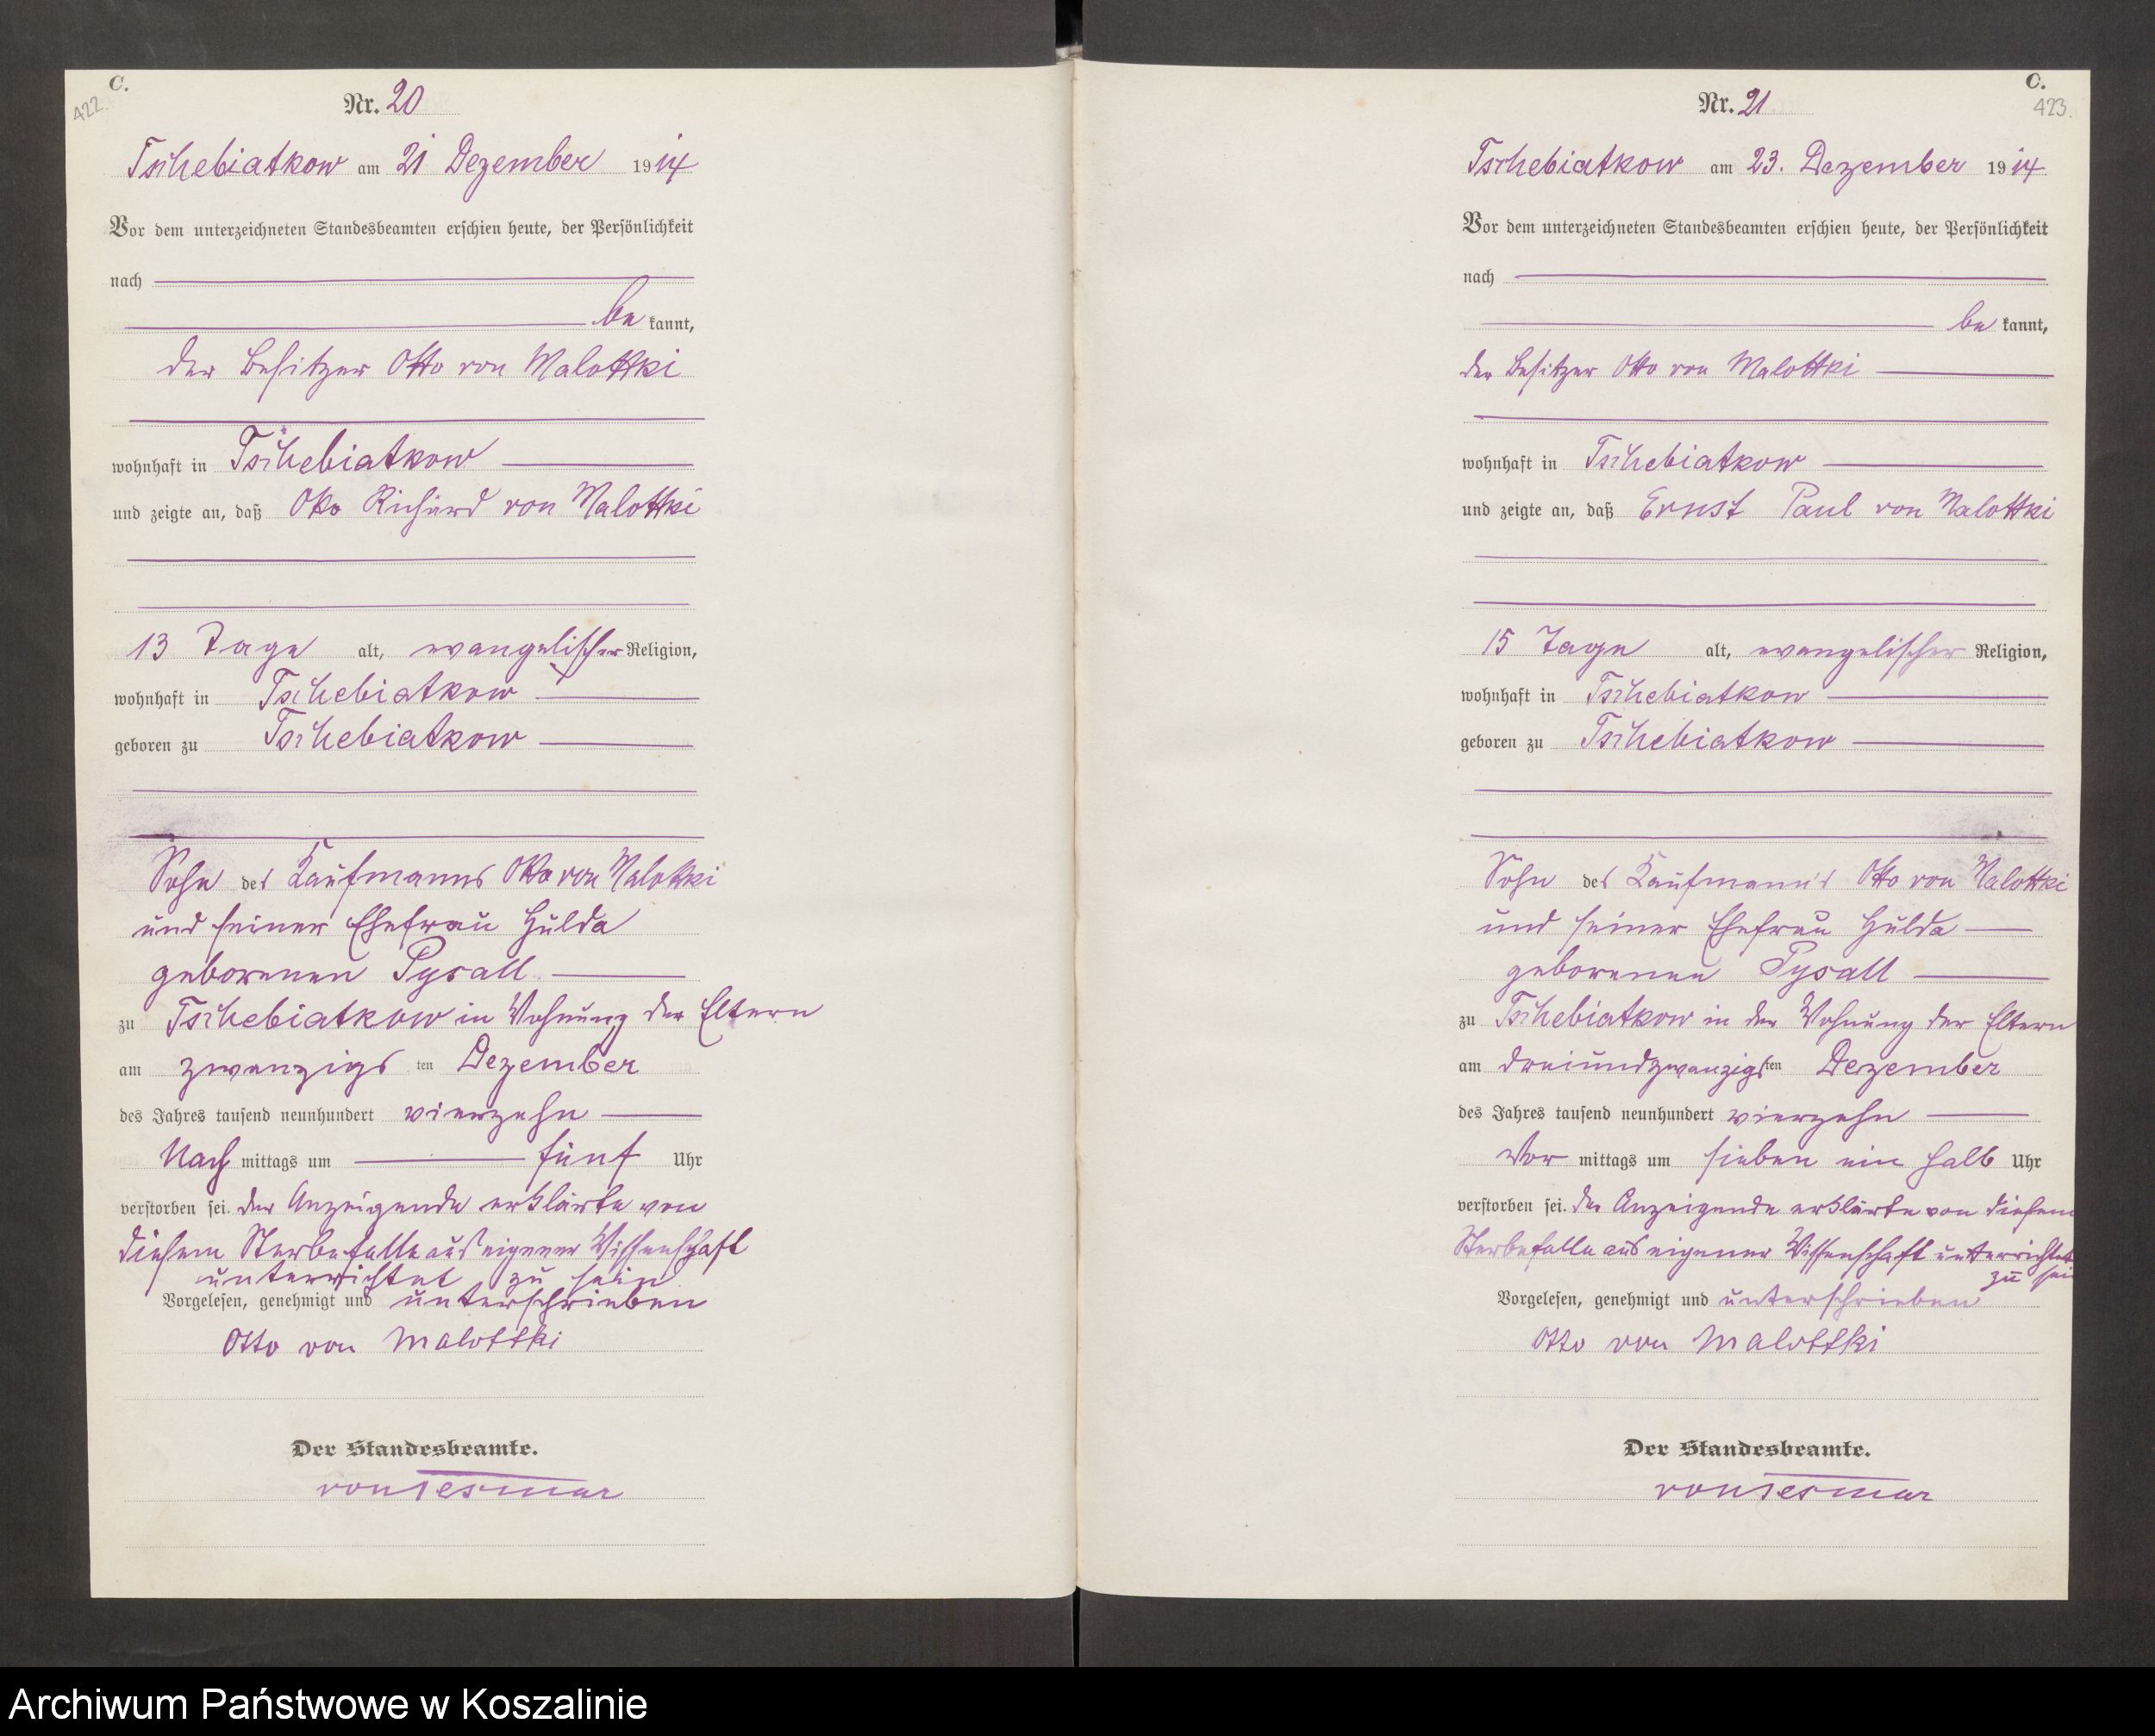 C.
422.
Nr. 20
Tschebiatkow am 21 Dezember 1914
Vor dem unterzeichneten Standesbeamten erschien heute, der Persönlichkeit
nach
be kannt,
der Besitzer Otto von Malottki
wohnhaft in Tschebiatkow
und zeigte an, daß Otto Richard von Malottki
13 Tage alt, evangelischer Religion,
wohnhaft in Tschebiatkow
geboren zu Tschebiatkow
Sohn des Kaufmanns Otto von Malottki
und seiner Ehefrau Hulda
geborenen Pysall
zu Tschebiatkow in Wohnung der Eltern
am zwanzigs ten Dezember
des Jahres tausend neunhundert vierzehn
Nach mittags um fünf Uhr
verstorben sei. der Anzeigende erklärte von
diesem Sterbefalle aus eigener Wissenschaft
unterrichtet zu sein
Vorgelesen, genehmigt und unterschrieben
Otto von Malottki
Der Standesbeamte.
von Tesmar
C.
423.
Nr. 21
Tschebiatkow am 23. Dezember 1914
Vor dem unterzeichneten Standesbeamten erschien heute, der Persönlichkeit
nach
be kannt,
der Besitzer Otto von Malottki
wohnhaft in Tschebiatkow
und zeigte an, daß Ernst Paul von Malottki
15 Tage alt, evangelischer Religion,
wohnhaft in Tschebiatkow
geboren zu Tschebiatkow
Sohn des Kaufmanns Otto von Malottki
und seiner Ehefrau Hulda
geborenen Pysall
zu Tschebiatkow in der Wohnung der Eltern
am dreiundzwanzigsten Dezember
des Jahres tausend neunhundert vierzehn
Vor mittags um sieben ein halb Uhr
verstorben sei. der Anzeigende erklärte von diesem
Sterbefalle aus eigener Wissenschaft unterrichtet
zu sein
Vorgelesen, genehmigt und unterschrieben
Otto von Malottki
Der Standesbeamte.
von Tesmar
Archiwum Państwowe w Koszalinie